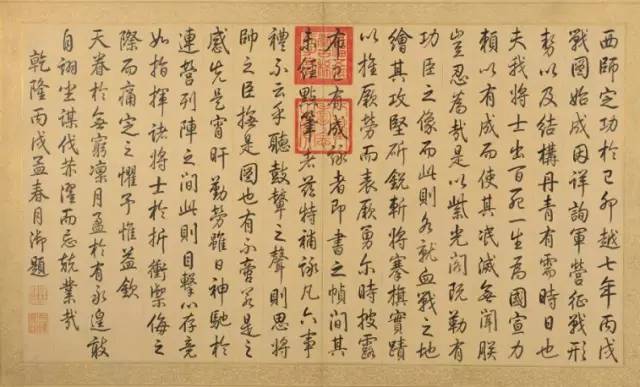 西師定功於己卯越七年丙戌
戰圖始成因詳詢軍營征戰形
勢以及結構丹青有需時日也
夫我將士出百死一生為國宣力
賴以有成而使其泯滅無聞朕
豈忍為哉是以紫光閣既勒有
功臣之像而此則各就血戰之地
繪其攻堅斫銳斬將搴旗實蹟
以推厥勞而表厥勇尔時披露
布已有成詠者即書之幀間其
未經點筆者茲特補詠凡六事
禮不云乎聽鼓鼙之聲則思將
帥之臣撫是圖也有不啻若是之
感先是宵旰勤勞雖日神馳於
連營列陣之間此則目擊心存竟
如指揮諸將士於折衝禦侮之
際而痛定之懼予惟益欽
天眷於無窮凜月盈於有永遑敢
自詡坐謀伐濯而忘兢業哉
乾隆丙戌孟春月御題